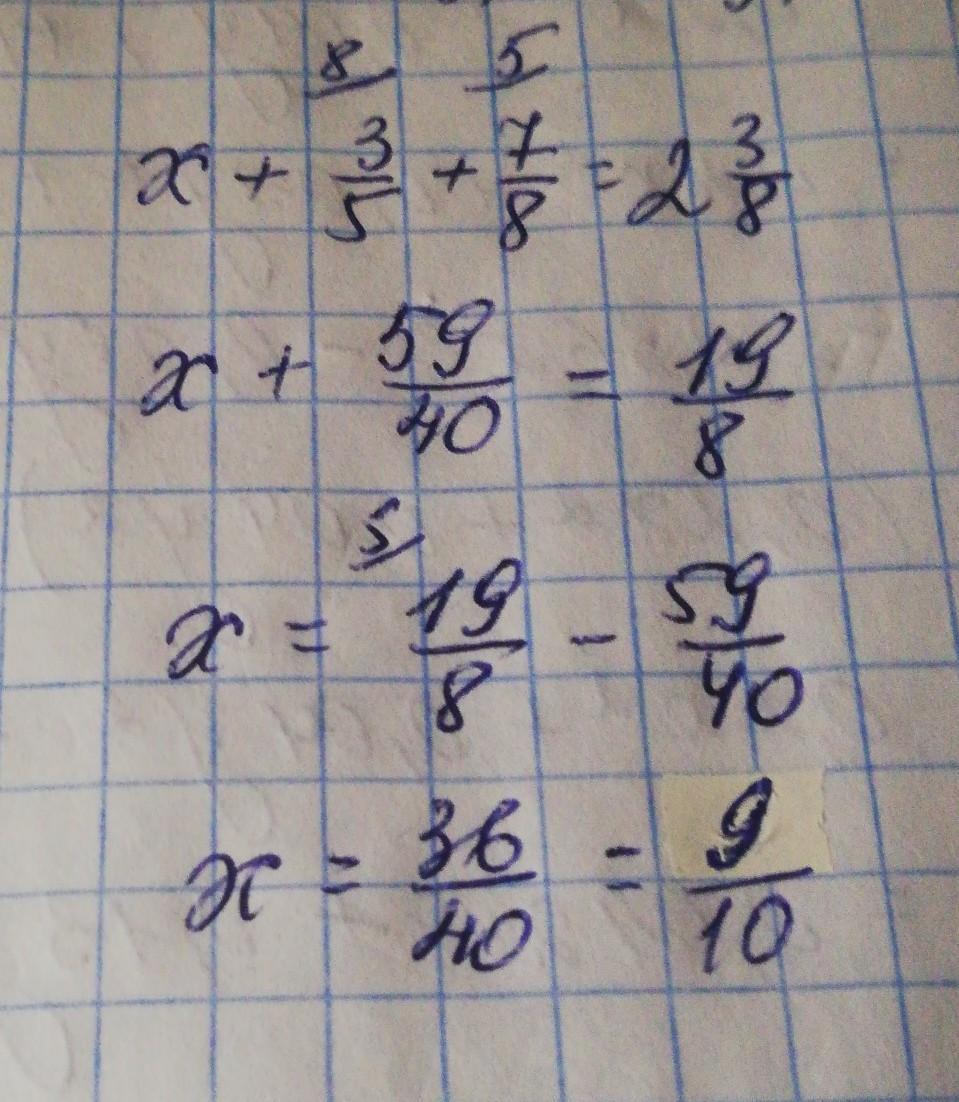 8 5
x + 3/5 + 7/8 = 2 3/8
x + 59/40 = 19/8
5
x = 19/8 - 59/40
x = 36/40 = 9/10